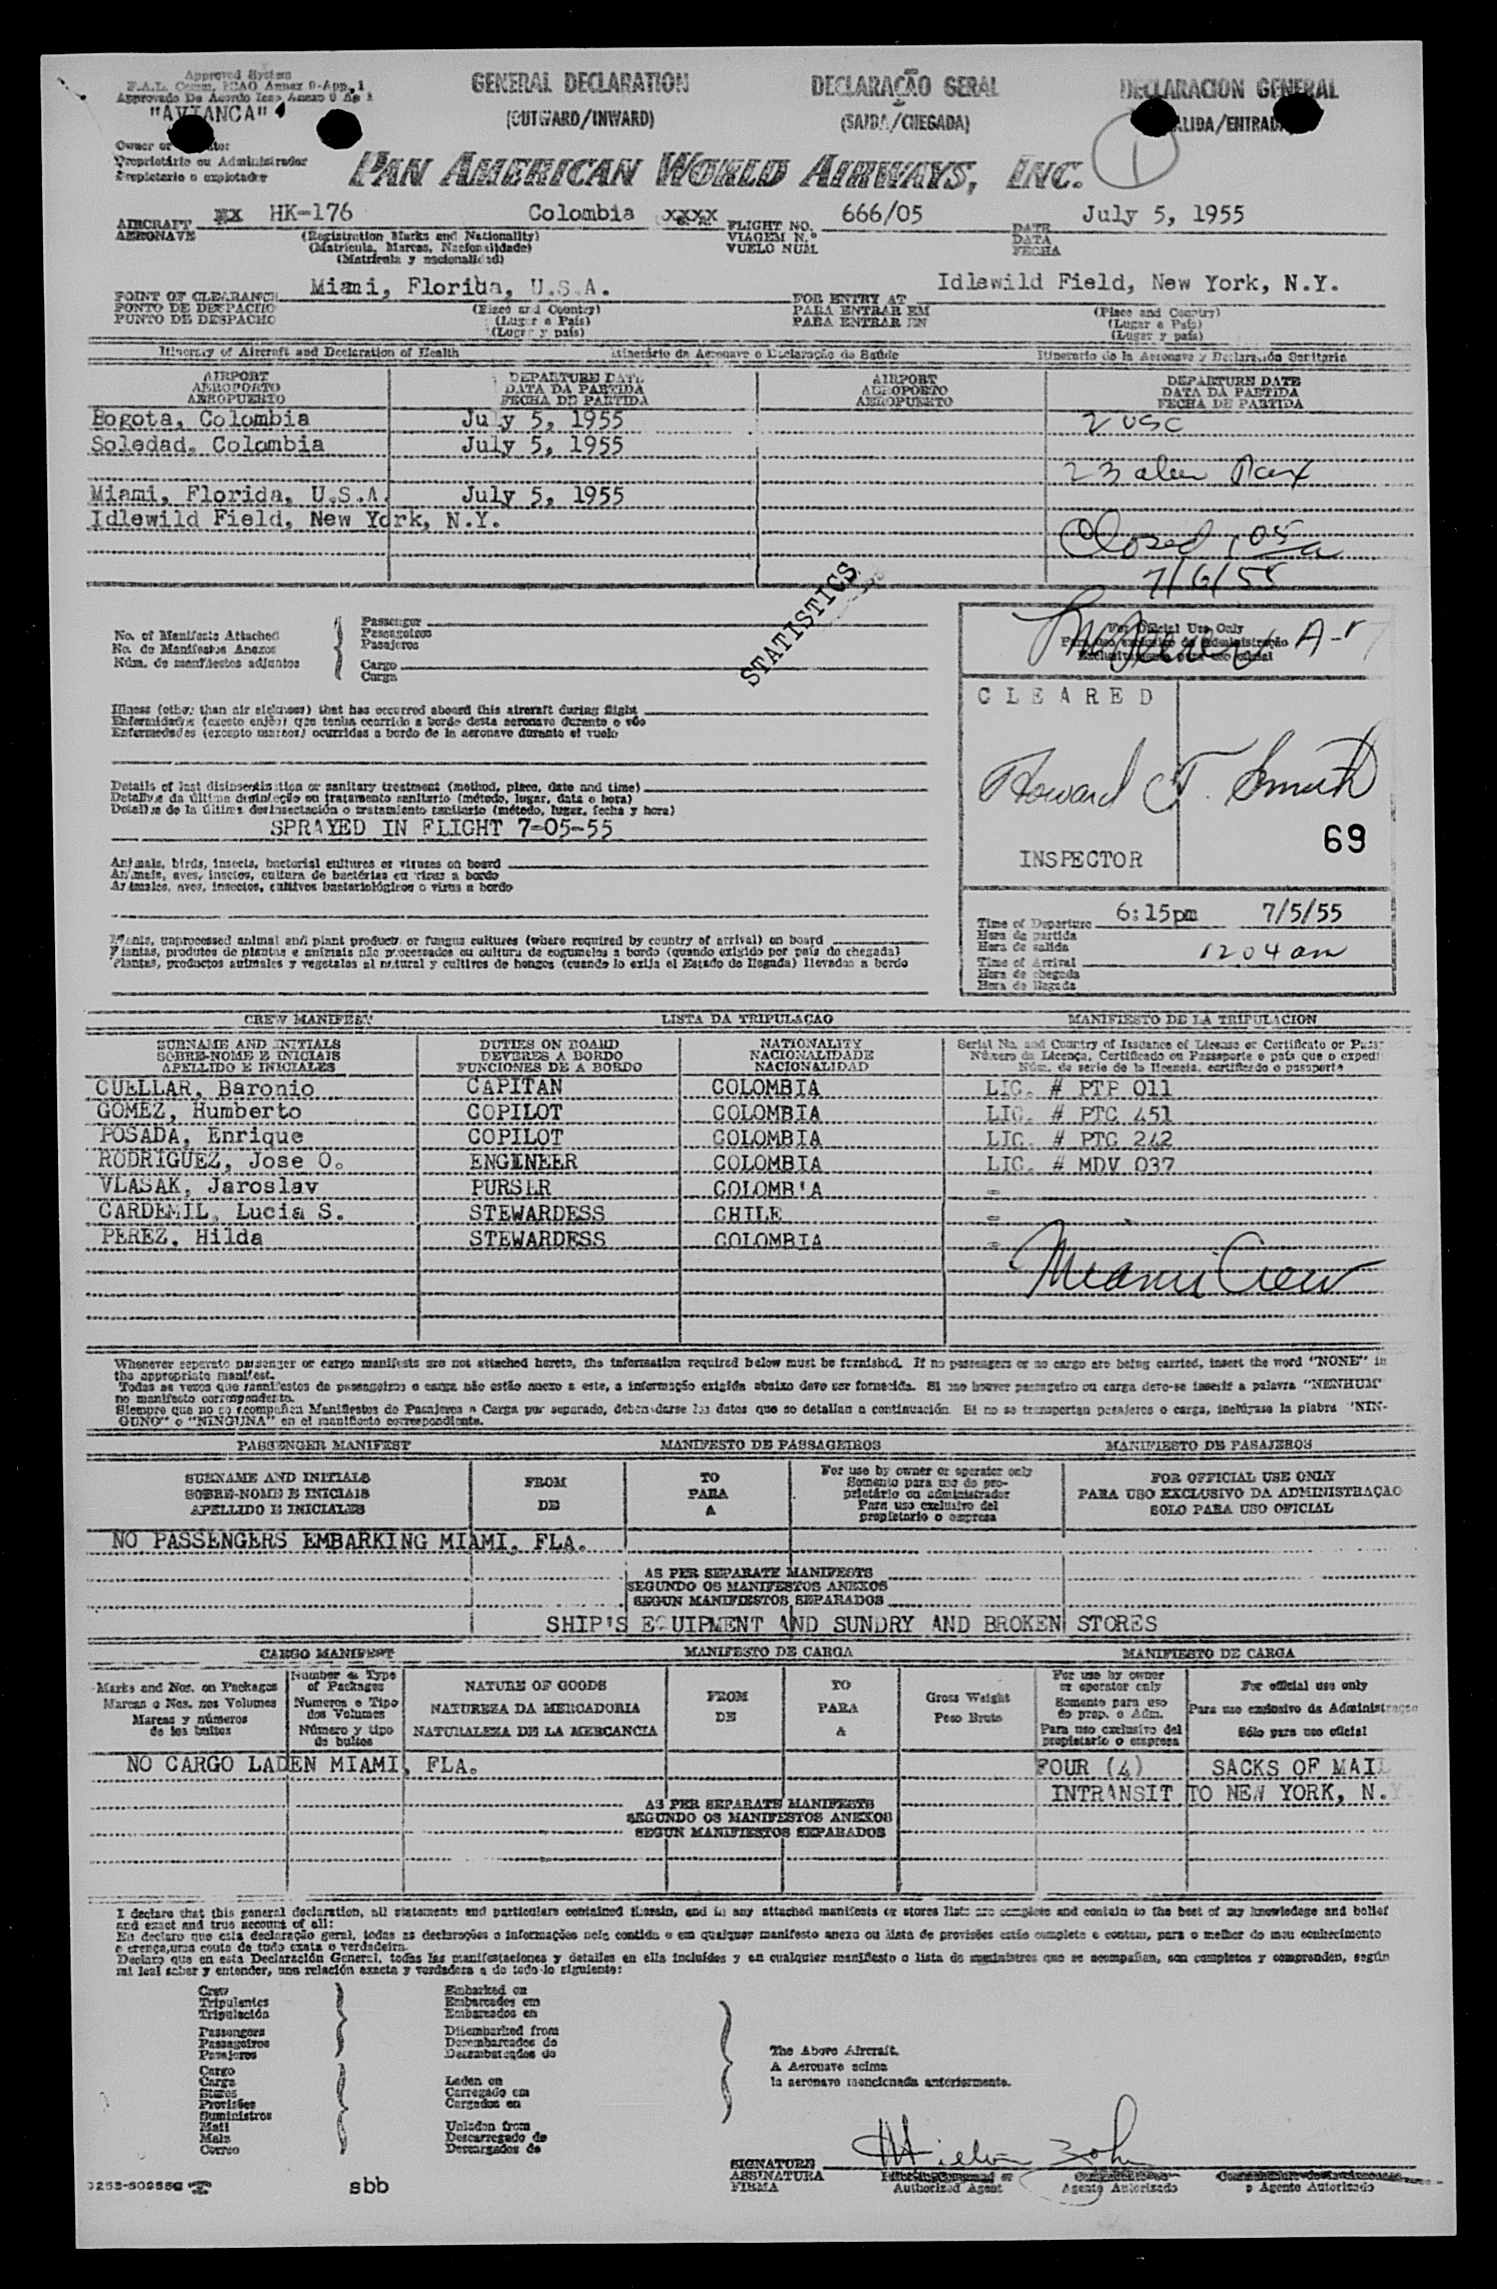 Approved System
F.A.L. Comm. ICAO Annex 9-App. 1
"AVIANCA"
GENERAL DECLARATION
(OUTWARD/INWARD)
DECLARAÇÃO GERAL
(SAIDA/CHEGADA)
DECLARACION GENERAL
ALIDA/ENTRADA
1
Owner or
Proprietário ou Administrador
Propietario o explotador
PAN AMERICAN WORLD AIRWAYS, INC.
AIRCRAFT HK-176 Colombia xxxx FLIGHT NO. 666/05 DATE July 5, 1955
AERONAVE (Registration Marks and Nationality) VIAGEM N.º DATA
(Matricula, Marcas, Nacionalidade) VUELO NUM. FECHA
(Matricula y nacionalidad)
POINT OF CLEARANCE Miami, Florida, U.S.A. FOR ENTRY AT Idlewild Field, New York, N.Y.
PONTO DE DESPACHO (Place and Country) PARA ENTRAR EM (Place and Country)
PUNTO DE DESPACHO (Lugar e País) PARA ENTRAR EN (Lugar e País)
(Lugar y país) (Lugar y país)
Itinerary of Aircraft and Declaration of Health Itinerário da Aeronave e Declaração de Saúde Itinerario de la Aeronave y Declaración Sanitaria
AIRPORT DEPARTURE DATE AIRPORT DEPARTURE DATE
AEROPORTO DATA DA PARTIDA AEROPORTO DATA DA PARTIDA
AEROPUERTO FECHA DE PARTIDA AEROPUERTO FECHA DE PARTIDA
Bogota, Colombia July 5, 1955 2 USC
Soledad, Colombia July 5, 1955
23 alien Pax
Miami, Florida, U.S.A. July 5, 1955
Idlewild Field, New York, N.Y.
Closed 105 a
7/6/55
STATISTICS
No. of Manifests Attached
No. de Manifestos Anexos
Núm. de manifiestos adjuntos
Passenger
Passageiros
Pasajeros
Cargo
Carga
For Official Use Only
Illness (other than air sickness) that has occurred aboard this aircraft during flight
Enfermidades (exceto enjôo) que tenha ocorrido a bordo desta aeronave durante o vôo
Enfermedades (excepto mareos) ocurridas a bordo de la aeronave durante el vuelo
CLEARED
Howard T. Smith
69
INSPECTOR
Details of last disinsectization or sanitary treatment (method, place, date and time)
Detalhes da última desinfeção ou tratamento sanitario (método, lugar, data e hora)
Detalles de la última desinsectación o tratamiento sanitario (método, lugar, fecha y hora)
SPRAYED IN FLIGHT 7-05-55
Animals, birds, insects, bacterial cultures or viruses on board
Animais, aves, insetos, cultura de bactérias ou virus a bordo
Animales, aves, insectos, cultivos bacteriológicos o virus a bordo
Plants, unprocessed animal and plant products or fungus cultures (where required by country of arrival) on board
Plantas, produtos de plantas e animais não processados ou cultura de cogumelos a bordo (quando exigido por país de chegada)
Plantas, productos animales y vegetales al natural y cultivos de hongos (cuando lo exija el Estado de llegada) llevados a bordo
Time of Departure 6:15pm 7/5/55
Hora de partida
Hora de salida
Time of Arrival 1204 am
Hora de chegada
Hora de llegada
CREW MANIFEST LISTA DA TRIPULAÇAO MANIFIESTO DE LA TRIPULACION
SURNAME AND INITIALS DUTIES ON BOARD NATIONALITY Serial No. and Country of Issuance of License or Certificate or
SOBRE-NOME E INICIAIS DEVERES A BORDO NACIONALIDADE Número da Licença, Certificado ou Passaporte e país que o
APELLIDO E INICIALES FUNCIONES DE A BORDO NACIONALIDAD Núm. de serie de la licencia, certificado o pasaporte
CUELLAR, Baronio CAPITAN COLOMBIA LIC. # PTP 011
GOMEZ, Humberto COPILOT COLOMBIA LIC. # PTC 451
POSADA, Enrique COPILOT COLOMBIA LIC. # PTC 242
RODRIGUEZ, Jose O. ENGINEER COLOMBIA LIC. # MDV 037
VLASAK, Jaroslav PURSER COLOMBIA -
CARDEMIL, Lucia S. STEWARDESS CHILE -
PEREZ, Hilda STEWARDESS COLOMBIA -
Miami Crew
Whenever separate passenger or cargo manifests are not attached hereto, the information required below must be furnished. If no passengers or no cargo are being carried, insert the word "NONE" in
the appropriate manifest.
Todas as vezes que manifestos de passageiros e carga não estão anexo a este, a informação exigida abaixo deve ser fornecida. Si nao houver passageiro ou carga deve-se inserir a palavra "NENHUM"
no manifesto correspondente.
Siempre que no se acompañen Manifiestos de Pasajeros o Carga por separado, deben darse los datos que se detallan a continuación. Si no se transportan pasajeros o carga, inclúyase la plabra "NIN-
GUNO" o "NINGUNA" en el manifiesto correspondiente.
PASSENGER MANIFEST MANIFESTO DE PASSAGEIROS MANIFIESTO DE PASAJEROS
SURNAME AND INITIALS FROM TO For use by owner or operator only FOR OFFICIAL USE ONLY
SOBRE-NOME E INICIAIS DE PARA Somente para uso do pro- PARA USO EXCLUSIVO DA ADMINISTRAÇAO
APELLIDO E INICIALES A prietário ou administrador SOLO PARA USO OFICIAL
Para uso exclusivo del
propietario o empresa
NO PASSENGERS EMBARKING MIAMI, FLA.
AS PER SEPARATE MANIFESTS
SEGUNDO OS MANIFESTOS ANEXOS
SEGUN MANIFIESTOS SEPARADOS
SHIP'S EQUIPMENT AND SUNDRY AND BROKEN STORES
CARGO MANIFEST MANIFESTO DE CARGA MANIFIESTO DE CARGA
Marks and Nos. on Packages Number & Type of Packages NATURE OF GOODS FROM TO Gross Weight For use by owner or operator only For official use only
Marcas e Nos. nos Volumes Numeros e Tipo dos Volumes NATUREZA DA MERCADORIA DE PARA Peso Bruto Somente para uso do prop. e Adm. Para uso exclusivo da Administraçao
Marcas y números de los bultos Número y tipo de bultos NATURALEZA DE LA MERCANCIA A Para uso exclusivo del propietario o empresa Sólo para uso oficial
NO CARGO LADEN MIAMI, FLA. FOUR (4) SACKS OF MAIL
INTRANSIT TO NEW YORK, N.
AS PER SEPARATE MANIFESTS
SEGUNDO OS MANIFESTOS ANEXOS
SEGUN MANIFIESTOS SEPARADOS
I declare that this general declaration, all statements and particulars contained therein, and in any attached manifests or stores lists are complete and contain to the best of my knowledge and belief
and exact and true account of all:
Eu declaro que esta declaração geral, todas as declarações e informações nele contida e em qualquer manifesto anexo ou lista de provisões estão completa e contem, para o melher do meu conhecimento
e crença, uma conta de tudo exata e verdadeira.
Declaro que en esta Declaración General, todas las manifestaciones y detalles en ella incluídos y en cualquier manifiesto o lista de suministros que se acompañan, son completos y comprenden, según
mi leal saber y entender, una relación exacta y verdadera a de todo lo siguiente:
Crew Embarked on
Tripulantes Embarcados em
Tripulación Embarcados en
Passengers Disembarked from
Passageiros Desembarcados de
Pasajeros Desembarcados de
The Above Aircraft.
A Aeronave acima
la aeronave mencionada anteriormente.
Cargo
Carga Laden on
Stores Carregado em
Provisões Cargados en
Suministros
Mail Unladen from
Mala Descarregado de
Correo Descargados de
SIGNATURE
ASSINATURA Authorized Agent Agente Autorizado o Agente Autorizado
FIRMA
sbb